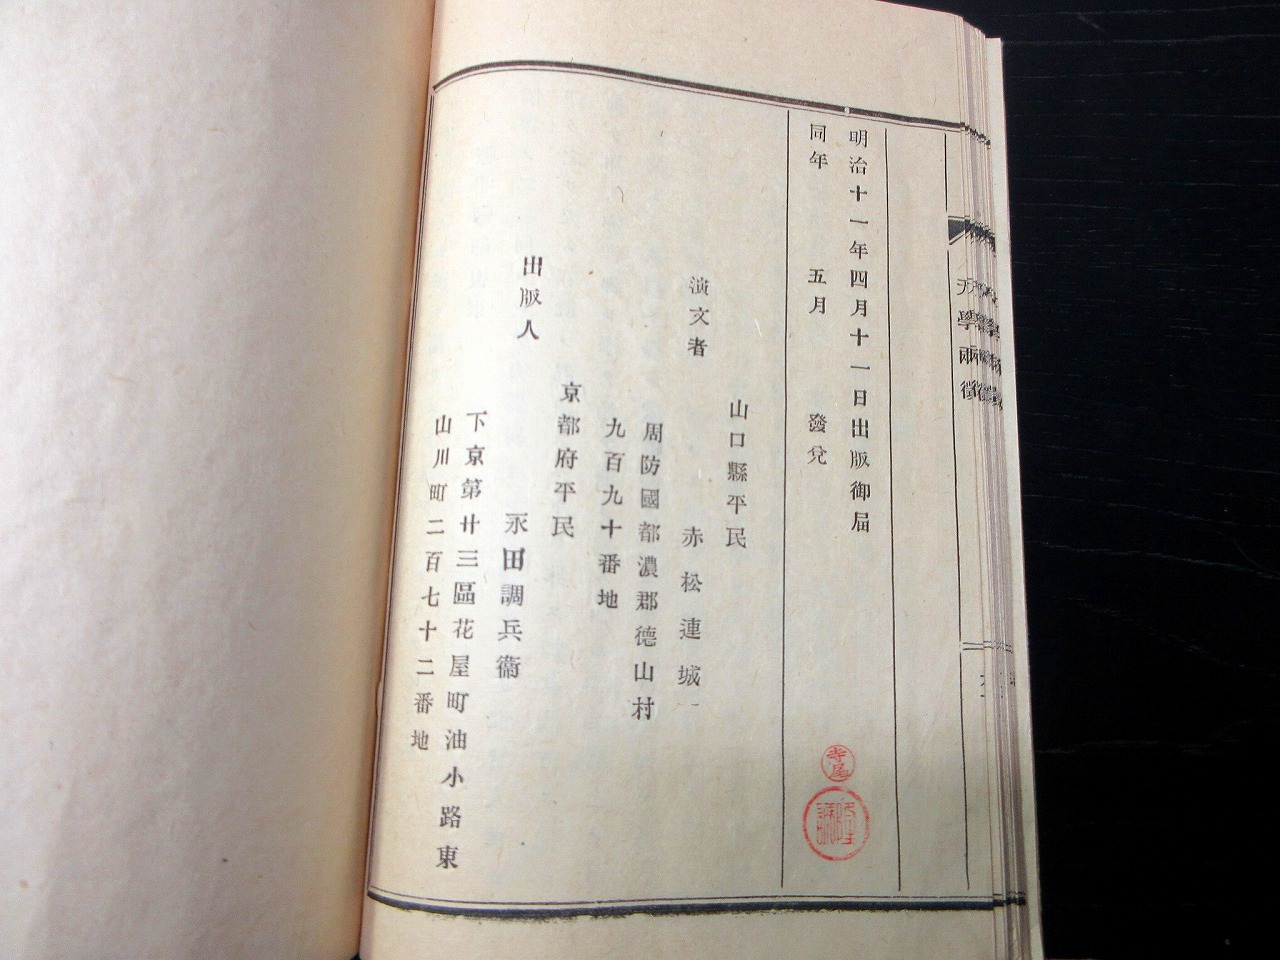 明治十一年四月十一日出版御届
同年 五月 發兌
山口縣平民
演文者 赤松連城
周防國都濃郡德山村
九百九十番地
京都府平民
出版人 永田調兵衞
下京第廿三區花屋町油小路東
山川町二百七十二番地
天學兩徵
寺尾